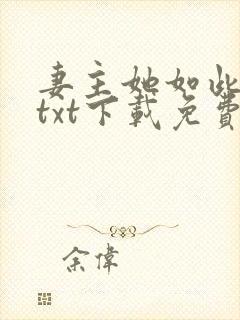 妻主她如此
txt下載免費
余偉